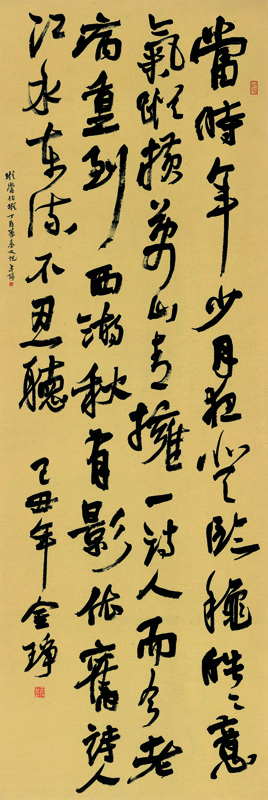 當時年少月夜登臨穐皓〻意
氣縱橫萬山青擁一詩人而今老
病重到西湖秋有影依舊詩人
江水東流不忍聽
己丑年金琤